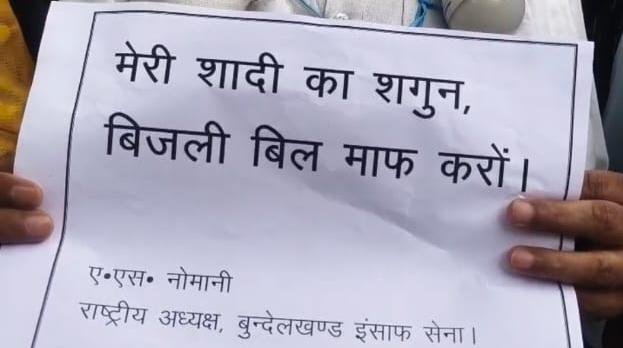 मेरी शादी का शगुन,
बिजली बिल माफ करों।
ए॰एस॰ नोमानी
राष्ट्रीय अध्यक्ष, बुन्देलखण्ड इंसाफ सेना।